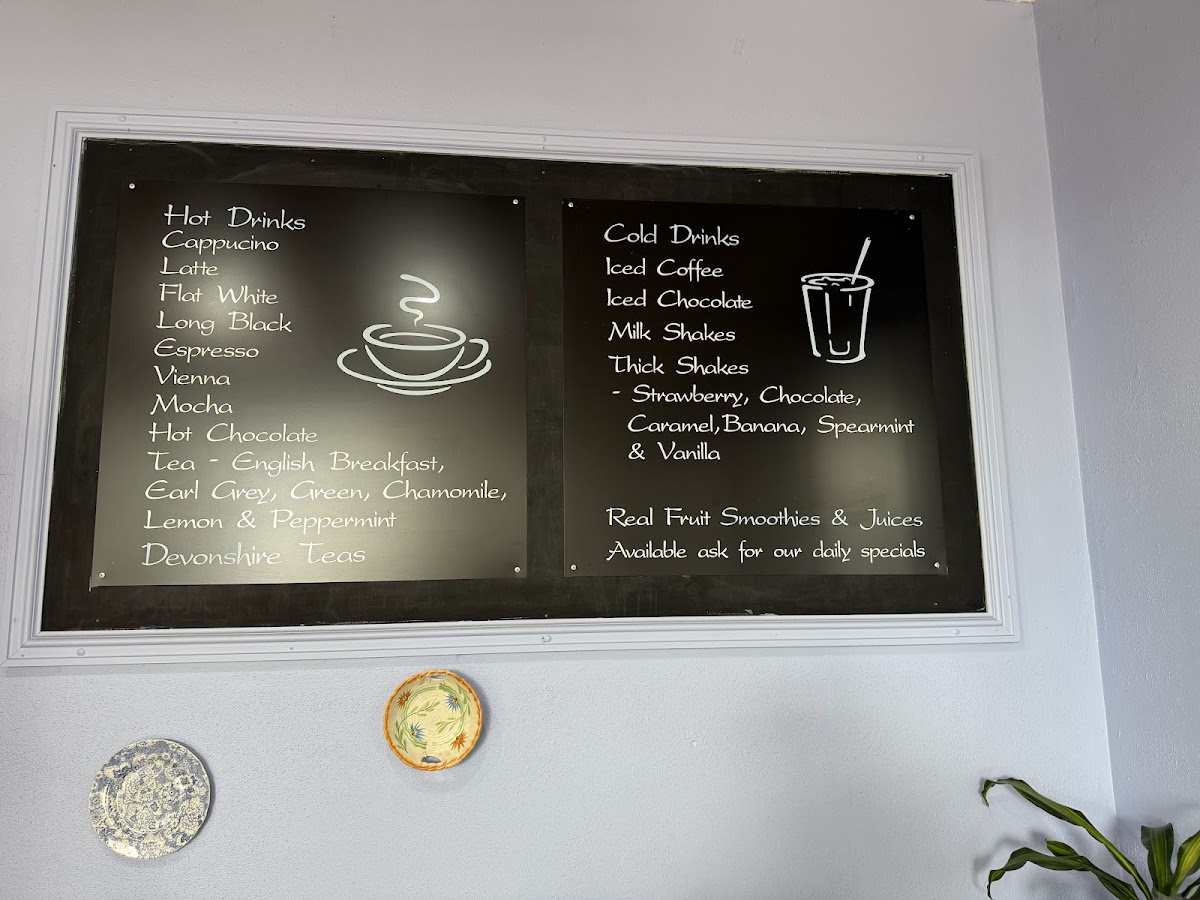 Hot Drinks
Cappucino
Latte
Flat White
Long Black
Espresso
Vienna
Mocha
Hot Chocolate
Tea - English Breakfast,
Earl Grey, Green, Chamomile,
Lemon & Peppermint
Devonshire Teas
Cold Drinks
Iced Coffee
Iced Chocolate
Milk Shakes
Thick Shakes
- Strawberry, Chocolate,
Caramel,Banana, Spearmint
& Vanilla
Real Fruit Smoothies & Juices
Available ask for our daily specials